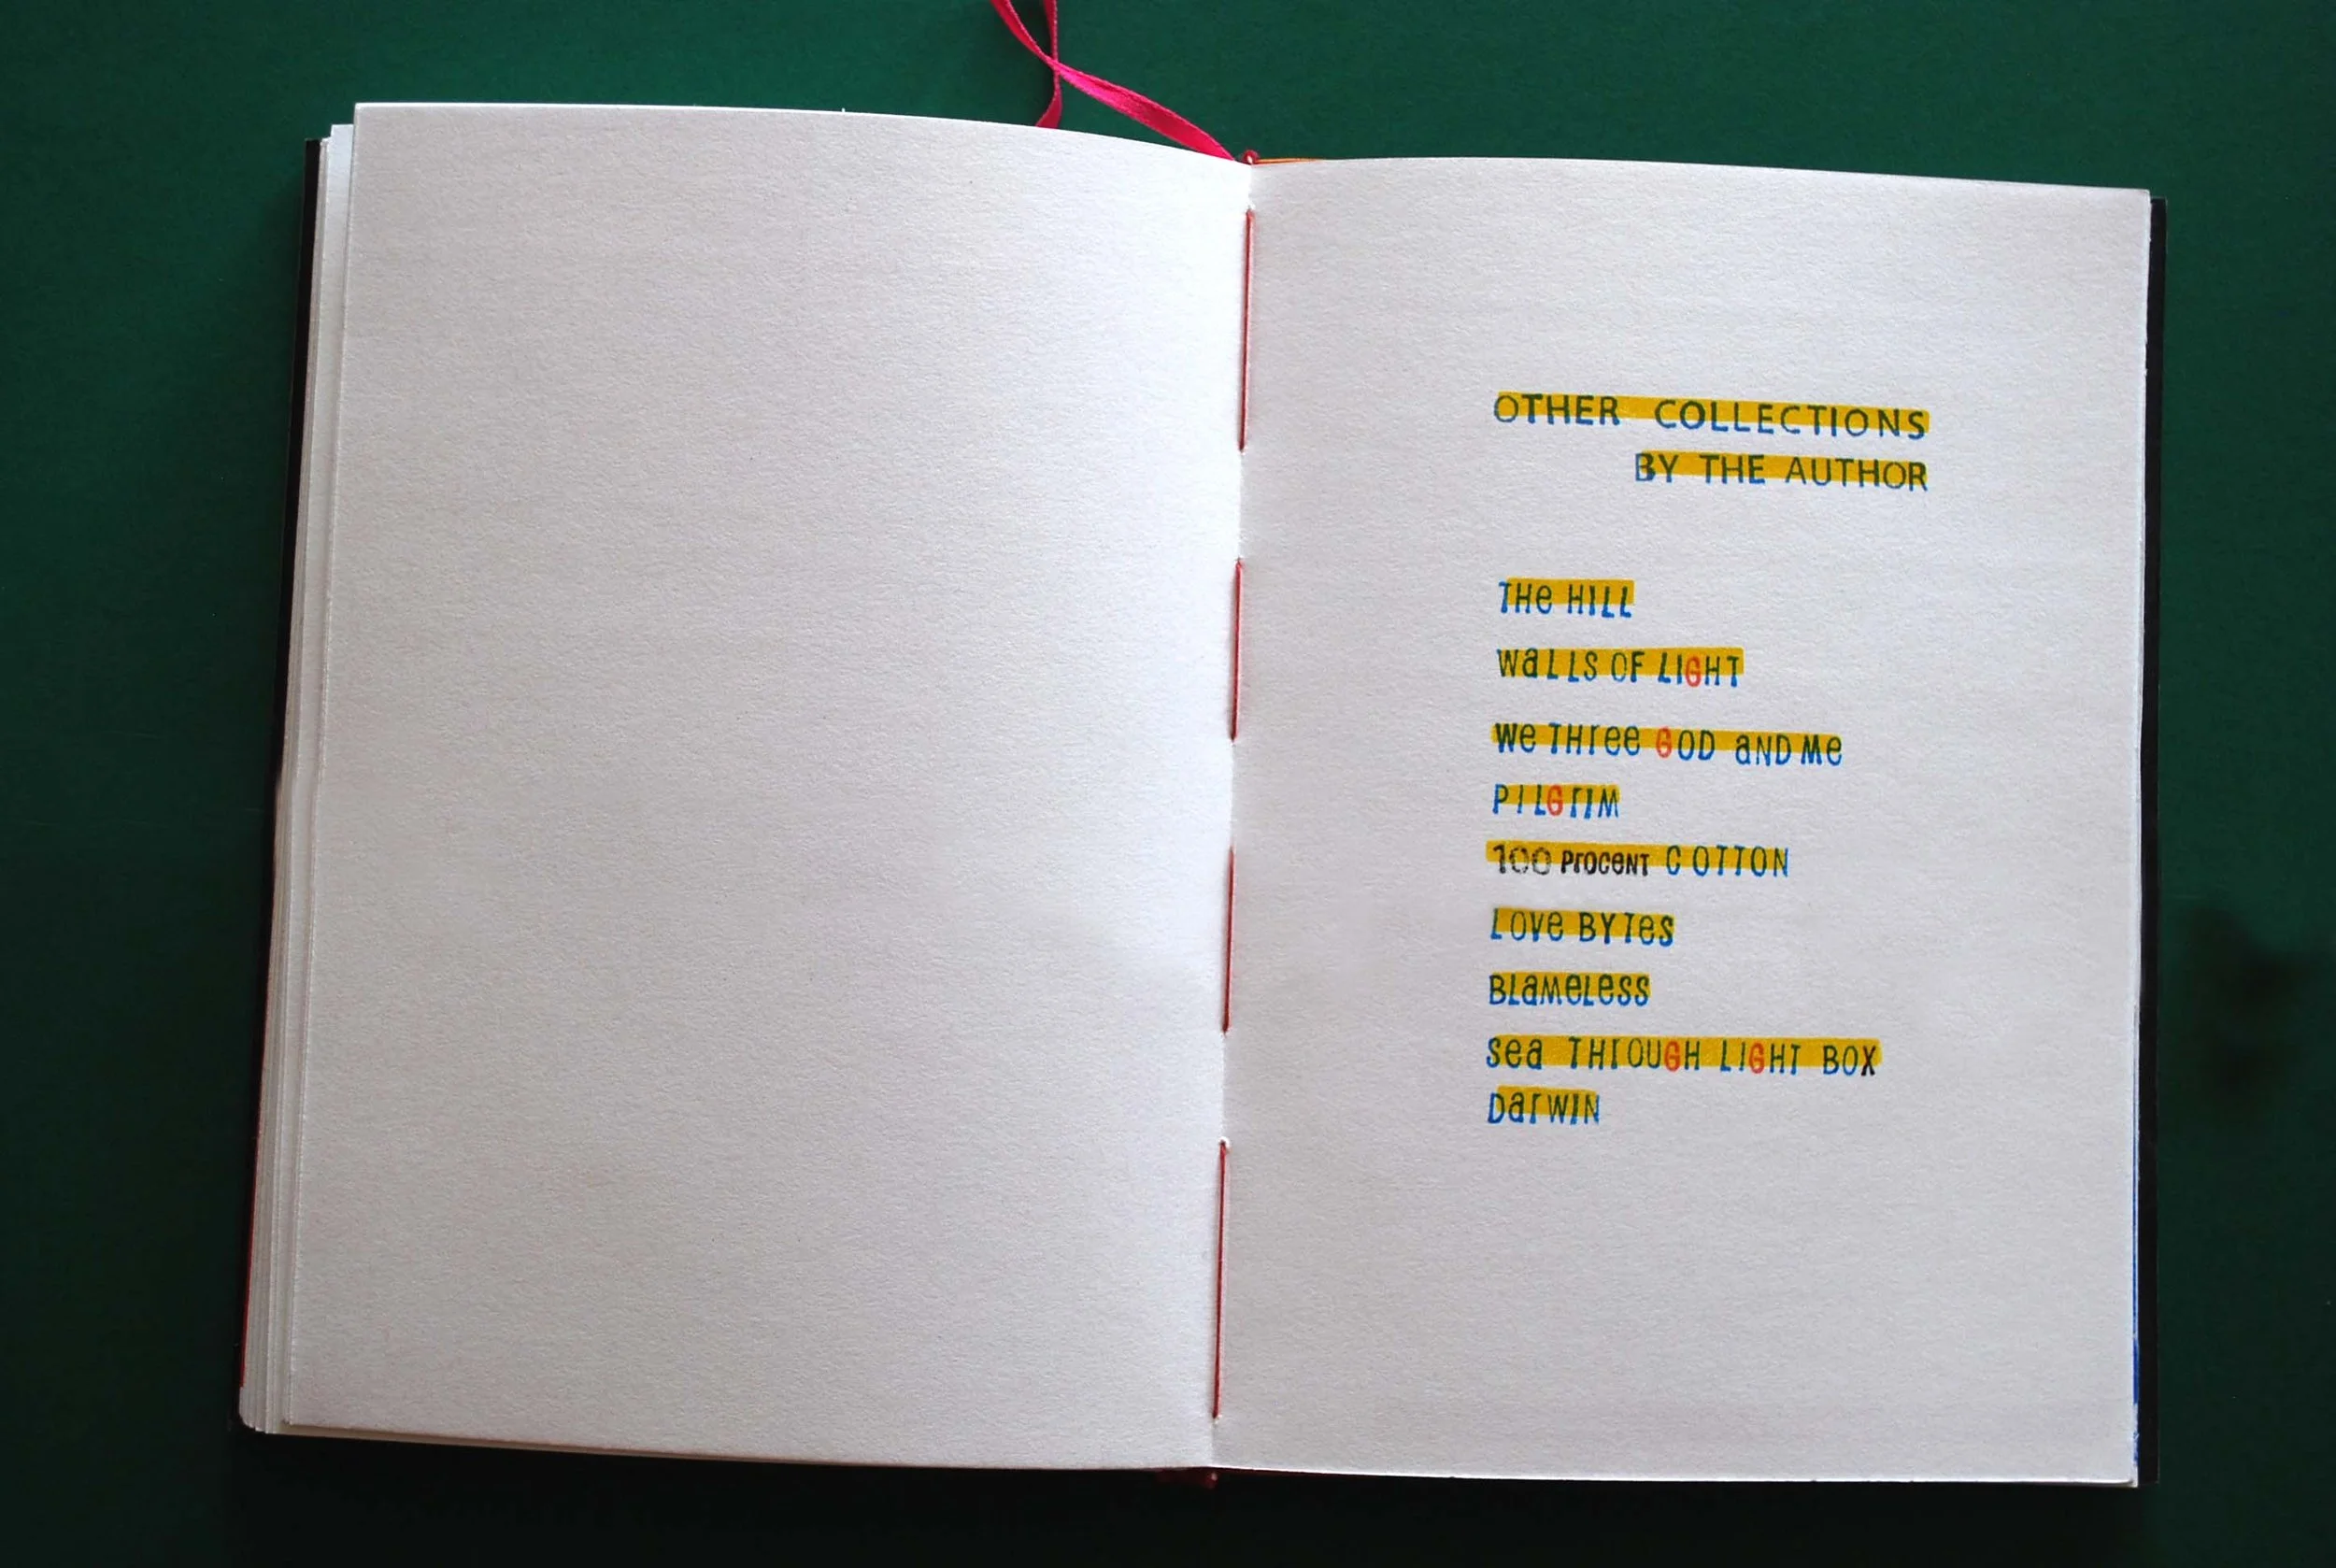 OTHER COLLECTIONS
BY THE AUTHOR
THe HILL
WaLLS OF LIGHT
We THree GOD aND Me
PILGrIM
100 ProceNT COTTON
LOVe BYTes
BLaMeLess
sea THrOUGH LIGHT BOX
DarWIN